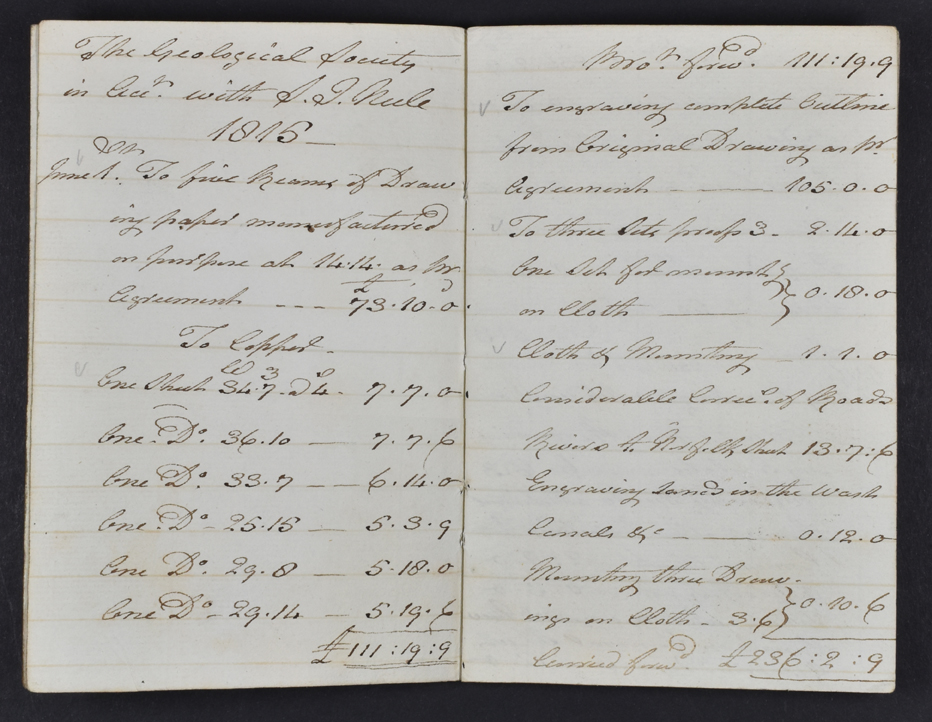 The Geological Society
in Acct. with S. I. Neele
1815
June 1. To five Reams of Draw
ing paper manufactured
on purpose at 14.14. as pr.
Agreement - - - £73.10.0
To Copper.
One Sheet 34.7. 4. 7.7.0
One Do. 36.10 — 7.7.6
One Do. 33.7 — 6.14.0
One Do. 25.15 — 5.3.9
One Do. 29.8 — 5.18.0
One Do. 29.14 — 5.19.6
£111:19:9
Brot. forwd. 111:19.9
To engraving complete Outline
from Original Drawing as pr.
Agreement — 105.0.0
To three Sets proofs 3. 2.14.0
One Set for mounting } 0.18.0
on Cloth —
Cloth & Mounting 1.1.0
Considerable Correcs. of Roads
Rivers &c. Norfolk Sheet 13.7:6
Engraving Sand in the Wash
Canals &c — 0.12.0
Mounting three Draw-
ings on Cloth - 3.6 } 0.10.6
Carried forwd. £236:2:9